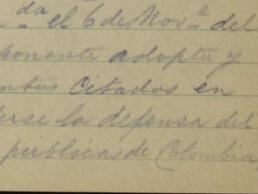 da el 6 de Nov.e del
ponente adopta y
ntos citados en
erse la defensa del
pública de Colombia